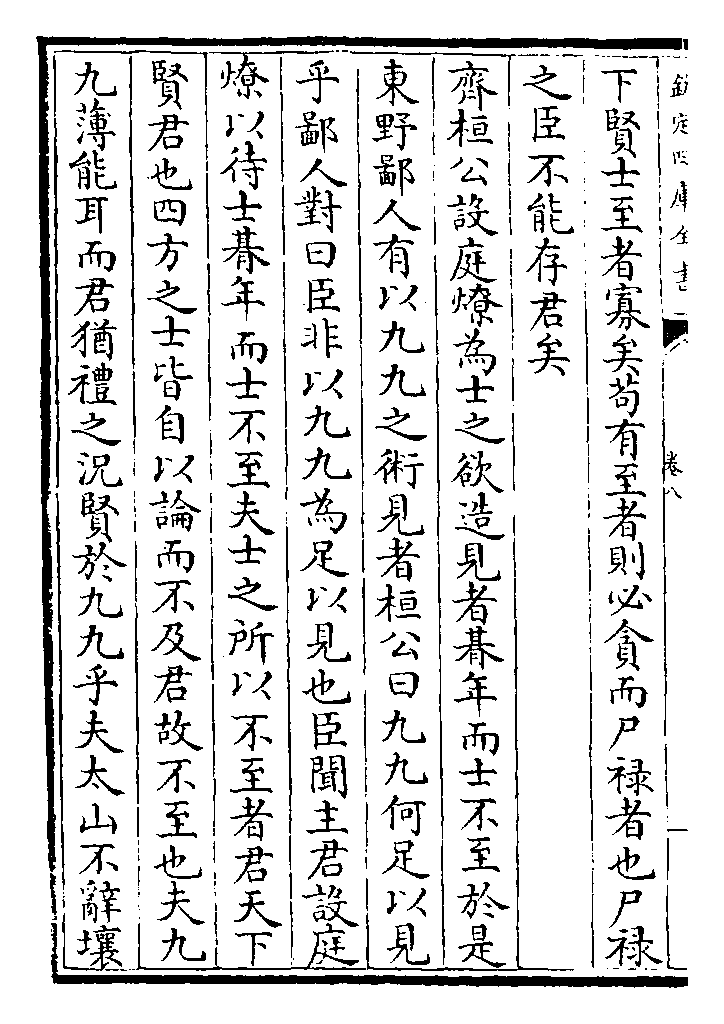 欽定四庫全書
卷八
下賢士至者寡矣茍有至者則必貪而尸禄者也尸禄
之臣不能存君矣
齊桓公設庭燎為士之欲造見者朞年而士不至於是
東野鄙人有以九九之術見者桓公曰九九何足以見
乎鄙人對曰臣非以九九為足以見也臣聞主君設庭
燎以待士朞年而士不至夫士之所以不至者君天下
賢君也四方之士皆自以論而不及君故不至也夫九
九薄能耳而君猶禮之況賢於九九乎夫太山不辭壤